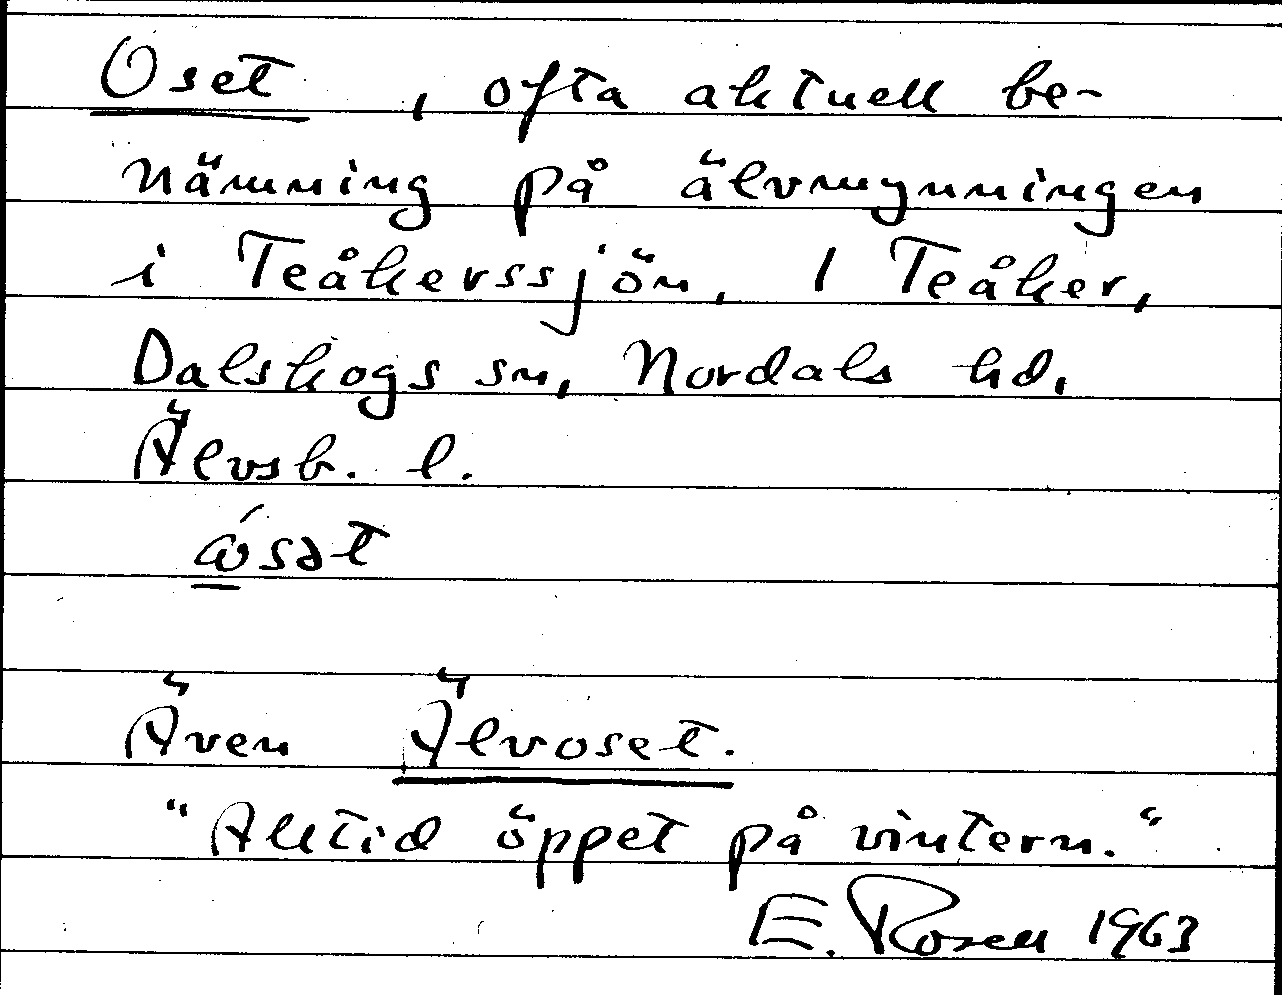 Oset, ofta aktuell be-
nämning på älvmynningen
i Teåkerssjön, I Teåker,
Dalskogs sn, Nordals hd,
Älvsb. l.
ώsət
Även Älvoset.
"Alltid öppet på vintern."
E. Rosell 1963